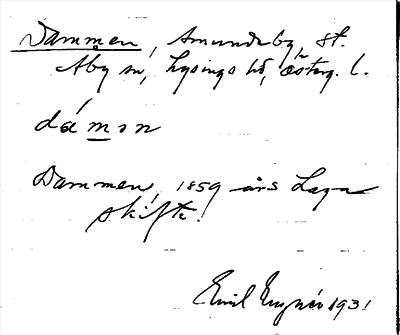 Dammen, Amundeby, St.
Åby sn, Lysings hd, Österg. l.
dámmn
Dammen, 1859 års Laga
skifte.
Emil 1931